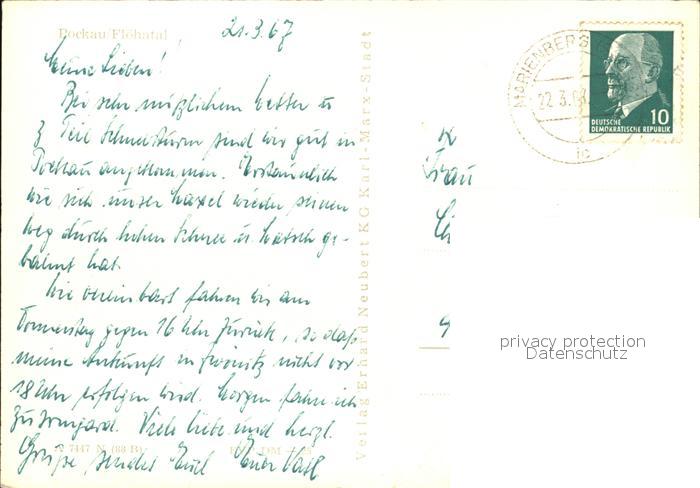 Pockau/Flöhatal
21.3.67
Meine Lieben!
Bei sehr mißlichem Wetter u.
z. Teil Schneesturm sind wir gut in
Pockau angekommen. Erstaunlich
wie sich unser Maxel wieder seinen
Weg durch hohen Schnee u. Matsch ge-
bahnt hat.
Wie vereinbart fahren wir am
Donnerstag gegen 16 Uhr zurück, so daß
meine Ankunft in Zwönitz nicht vor
18 Uhr erfolgen wird. Morgen fahre ich
zu Irmgard. Viele liebe und herzl.
Grüße sendet Euch Euer
A 7447 N (88 B)
Verlag Erhard Neubert KG Karl-Marx-Stadt
MARIENBERG
22.3.67
10
DEUTSCHE
DEMOKRATISCHE REPUBLIK
Frau
privacy protection
Datenschutz